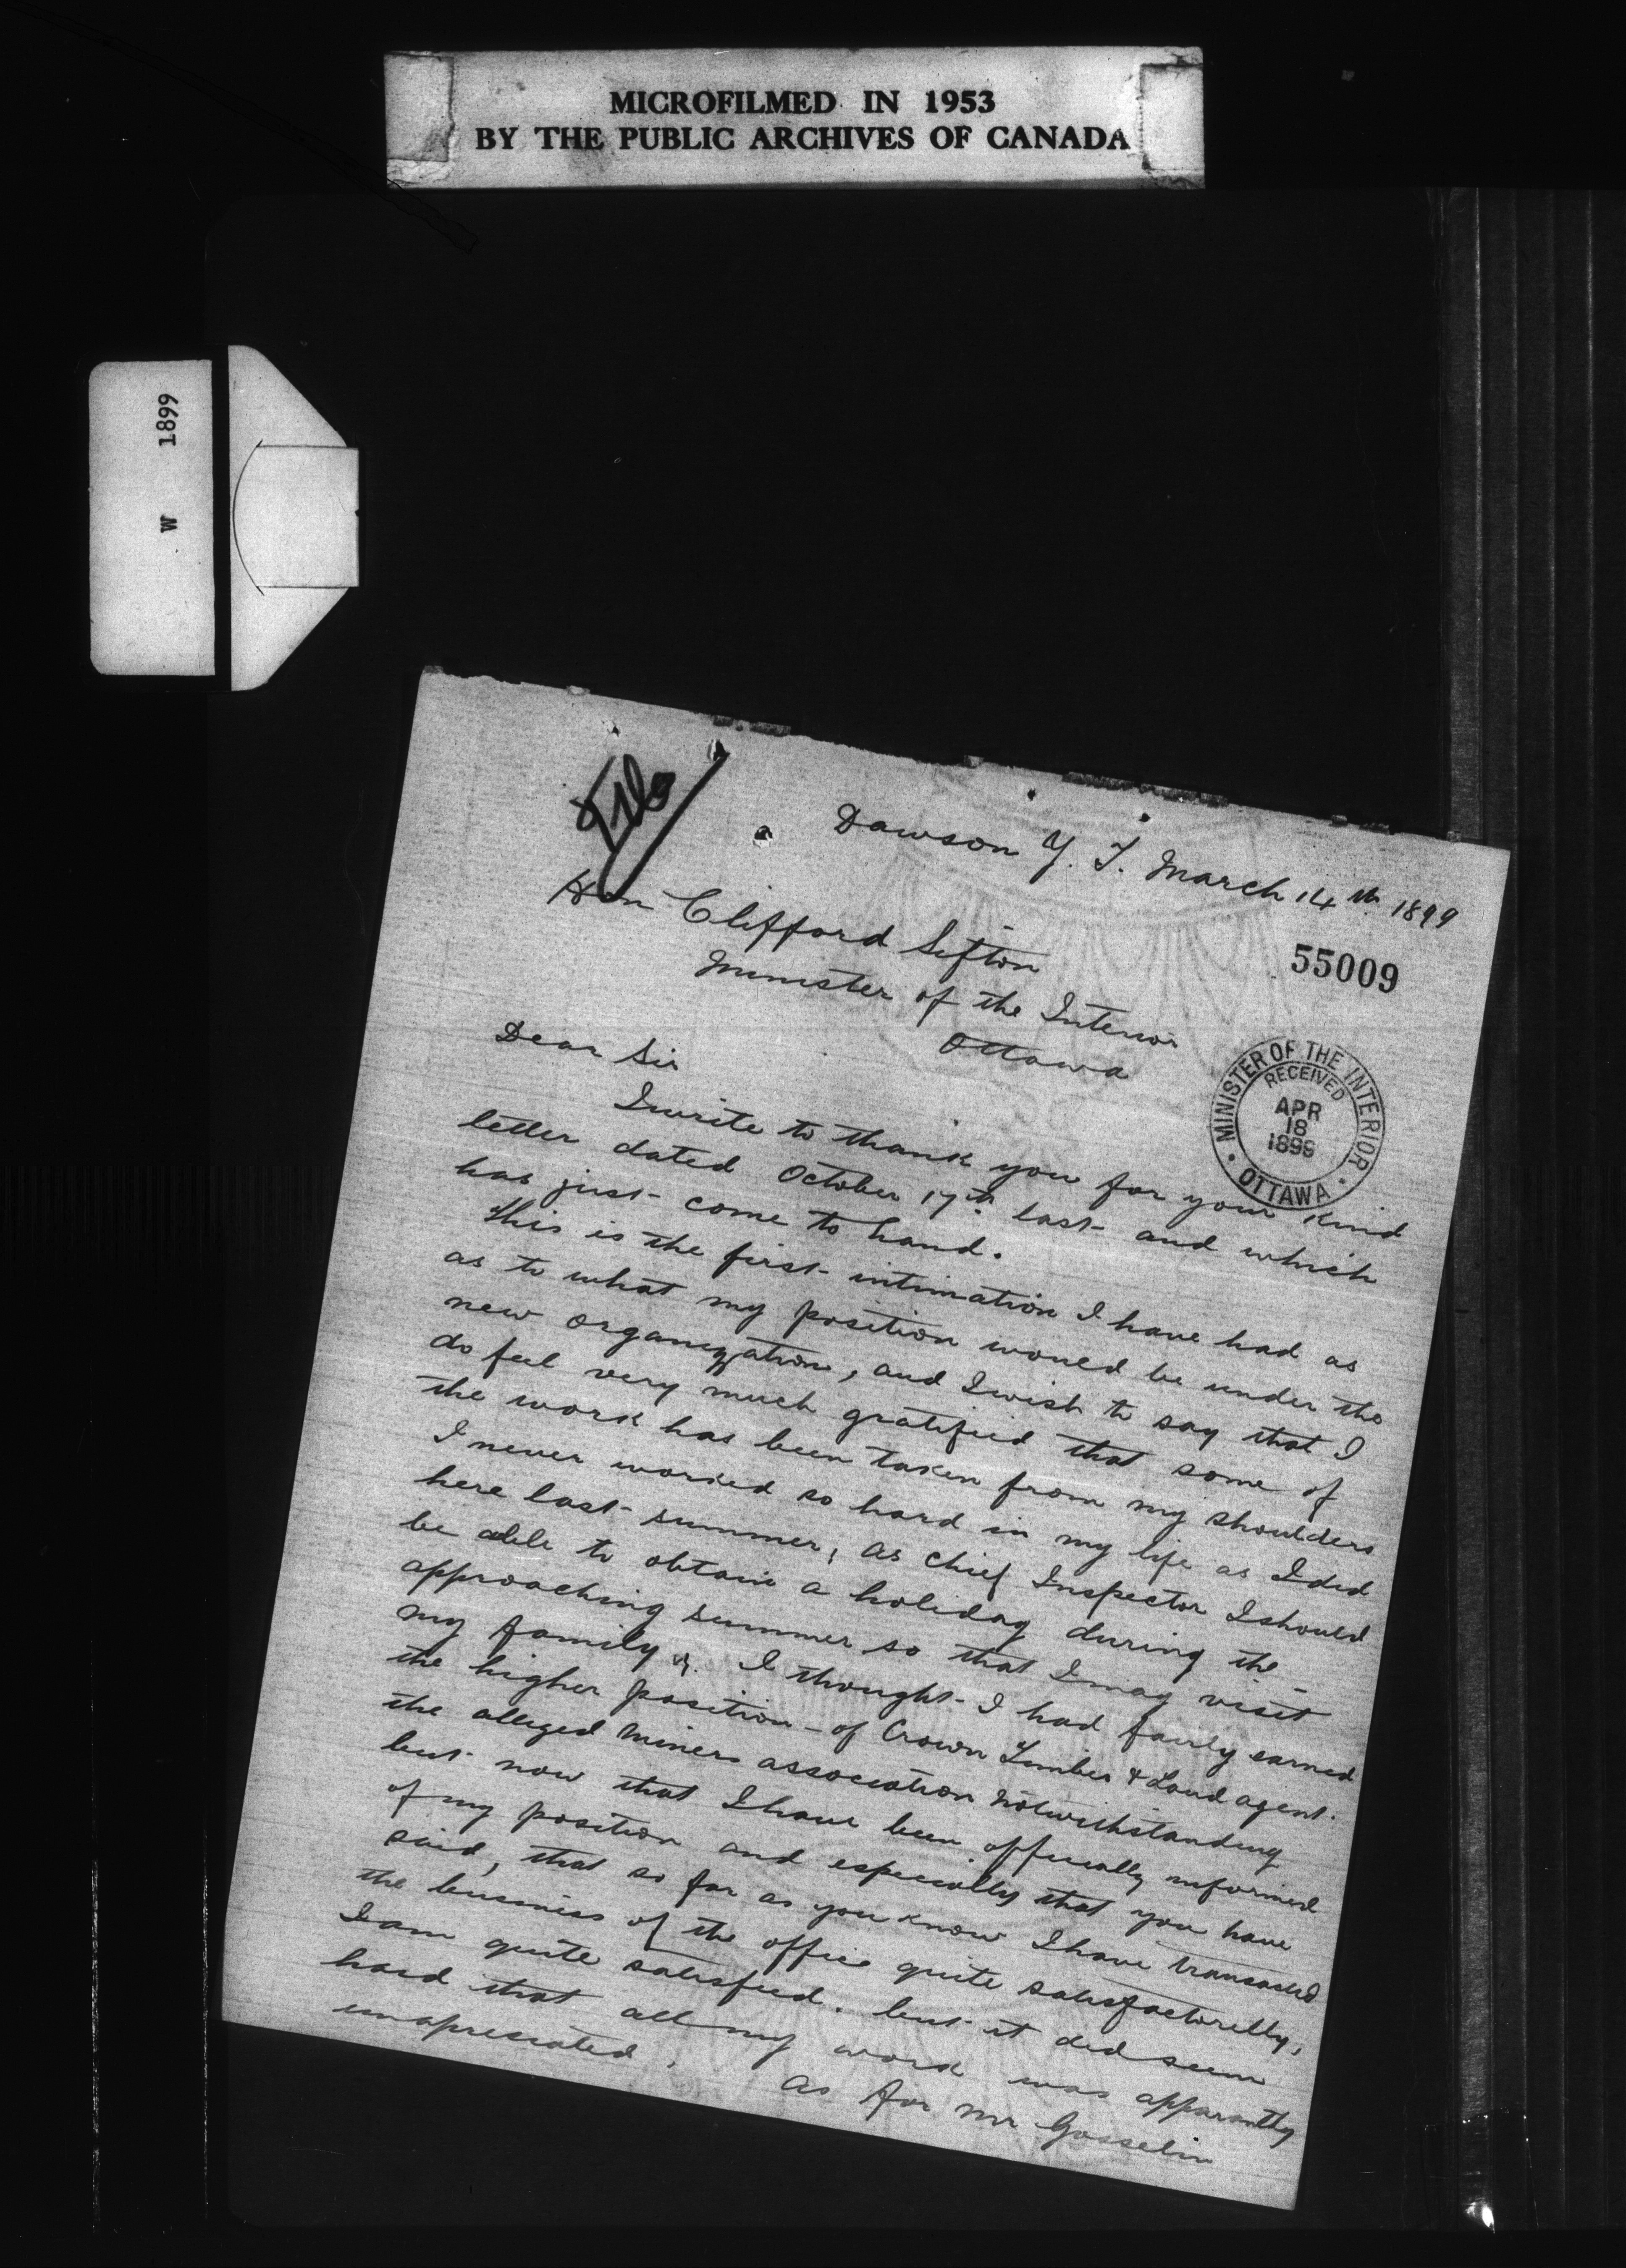 MICROFILMED IN 1953
BY THE PUBLIC ARCHIVES OF CANADA
W 1899
File
Dawson Y. T. March 14th 1899
Hon Clifford Sifton
55009
Minister of the Interior
Ottawa
MINISTER OF THE INTERIOR
RECEIVED
APR
18
1899
OTTAWA
Dear Sir
I write to thank you for your kind
letter dated October 17th last and which
has just come to hand.
This is the first intimation I have had as
as to what my position would be under the
new organization, and I wish to say that I
do feel very much gratified that some of
the work has been taken from my shoulders
I never worked so hard in my life as I did
here last summer, as Chief Inspector I should
be able to obtain a holiday during the
approaching summer so that I may visit
my family. I thought I had fairly earned
the higher position - of Crown Timber & Land agent.
the alleged Miners association notwithstanding
but now that I have been officially informed
of my position and especially that you have
said, that so far as you know I have transacted
the business of the office quite satisfactorelly,
I am quite satisfied. but it did seem
hard that all my work was apparantly
unapreciated.
as for Mr Gosselin